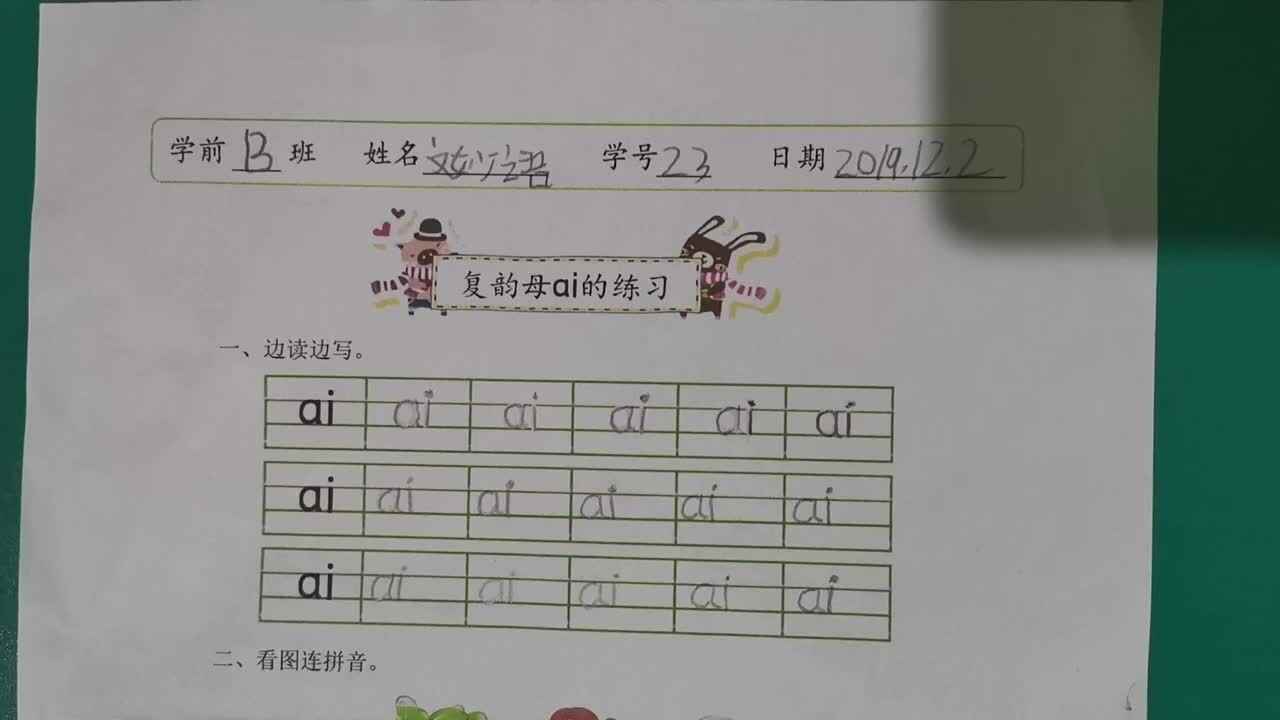 学前 B 班 姓名 学号 23 日期 2019.12.2
复韵母ai的练习
一、边读边写。
ai ai ai ai ai ai
ai ai ai ai ai ai
ai ai ai ai ai ai
二、看图连拼音。